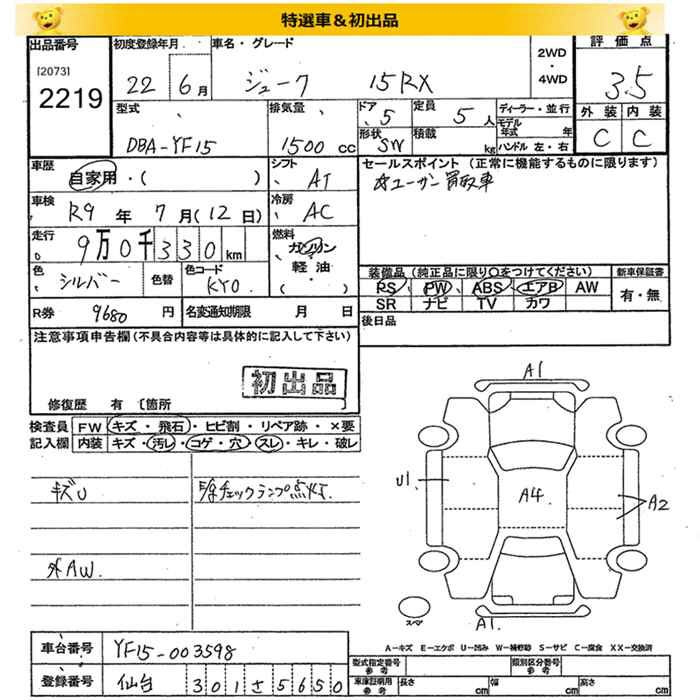 特選車＆初出品
出品番号 初度登録年月 車名・グレード 2WD ・ 4WD 評価点
[2073] 2219 22 6月 ジューク 15RX 3.5
型式 排気量 ドア 定員 ディーラー・並行 外装 内装
DBA-YF15 1500cc 5 5人 モデル年式 年 C C
形状 SW 積載 kg ハンドル 左・右
車歴 自家用・( ) シフト AT セールスポイント（正常に機能するものに限ります）
☆ユーザー買取車
車検 R9年 7月(12日) 冷房 AC
走行 9万0千330km 燃料 ガソリン 軽油・( )
色 シルバー 色替 色コード KY0 装備品（純正品に限り○をつけてください） 新車保証書
PS PW ABS エアB AW 有・無
SR ナビ TV カワ
R券 9680円 名変通知期限 月 日 後日品
注意事項申告欄(不具合内容等は具体的に記入して下さい)
初出品
修復歴 有 〔箇所
検査員記入欄 FW キズ・飛石・ヒビ割・リペア跡・×要
内装 キズ・汚レ・コゲ・穴・スレ・キレ・破レ
A1
キズU チェックランプ点灯.
U1 A4 A2
外AW.
スペア A1.
A－キズ E－エクボ U－凹み W－補修跡 S－サビ C－腐食 XX－交換済
車台番号 YF15-003598 型式指定番号 参考 類別区分番号 参考
登録番号 仙台 301さ5650 車庫証明用 参考 長さ cm 幅 cm 高さ cm